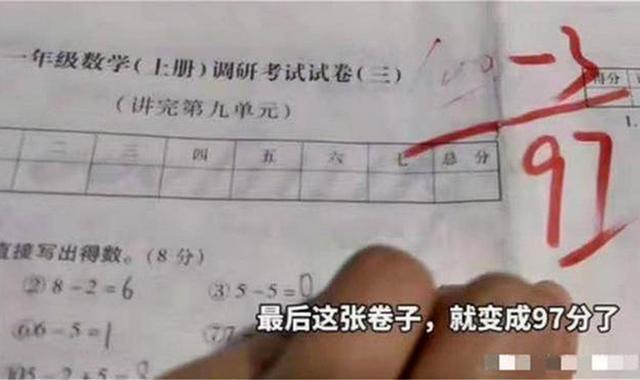 一年级数学(上册)调研考试试卷(三)
(讲完第九单元)
-3
得分
97
1.
二 三 四 五 六 七 总分
直接写出得数。(8分)
②8-2=6 ③5-5=0
⑥6-5=1 ⑦7
最后这张卷子，就变成97分了